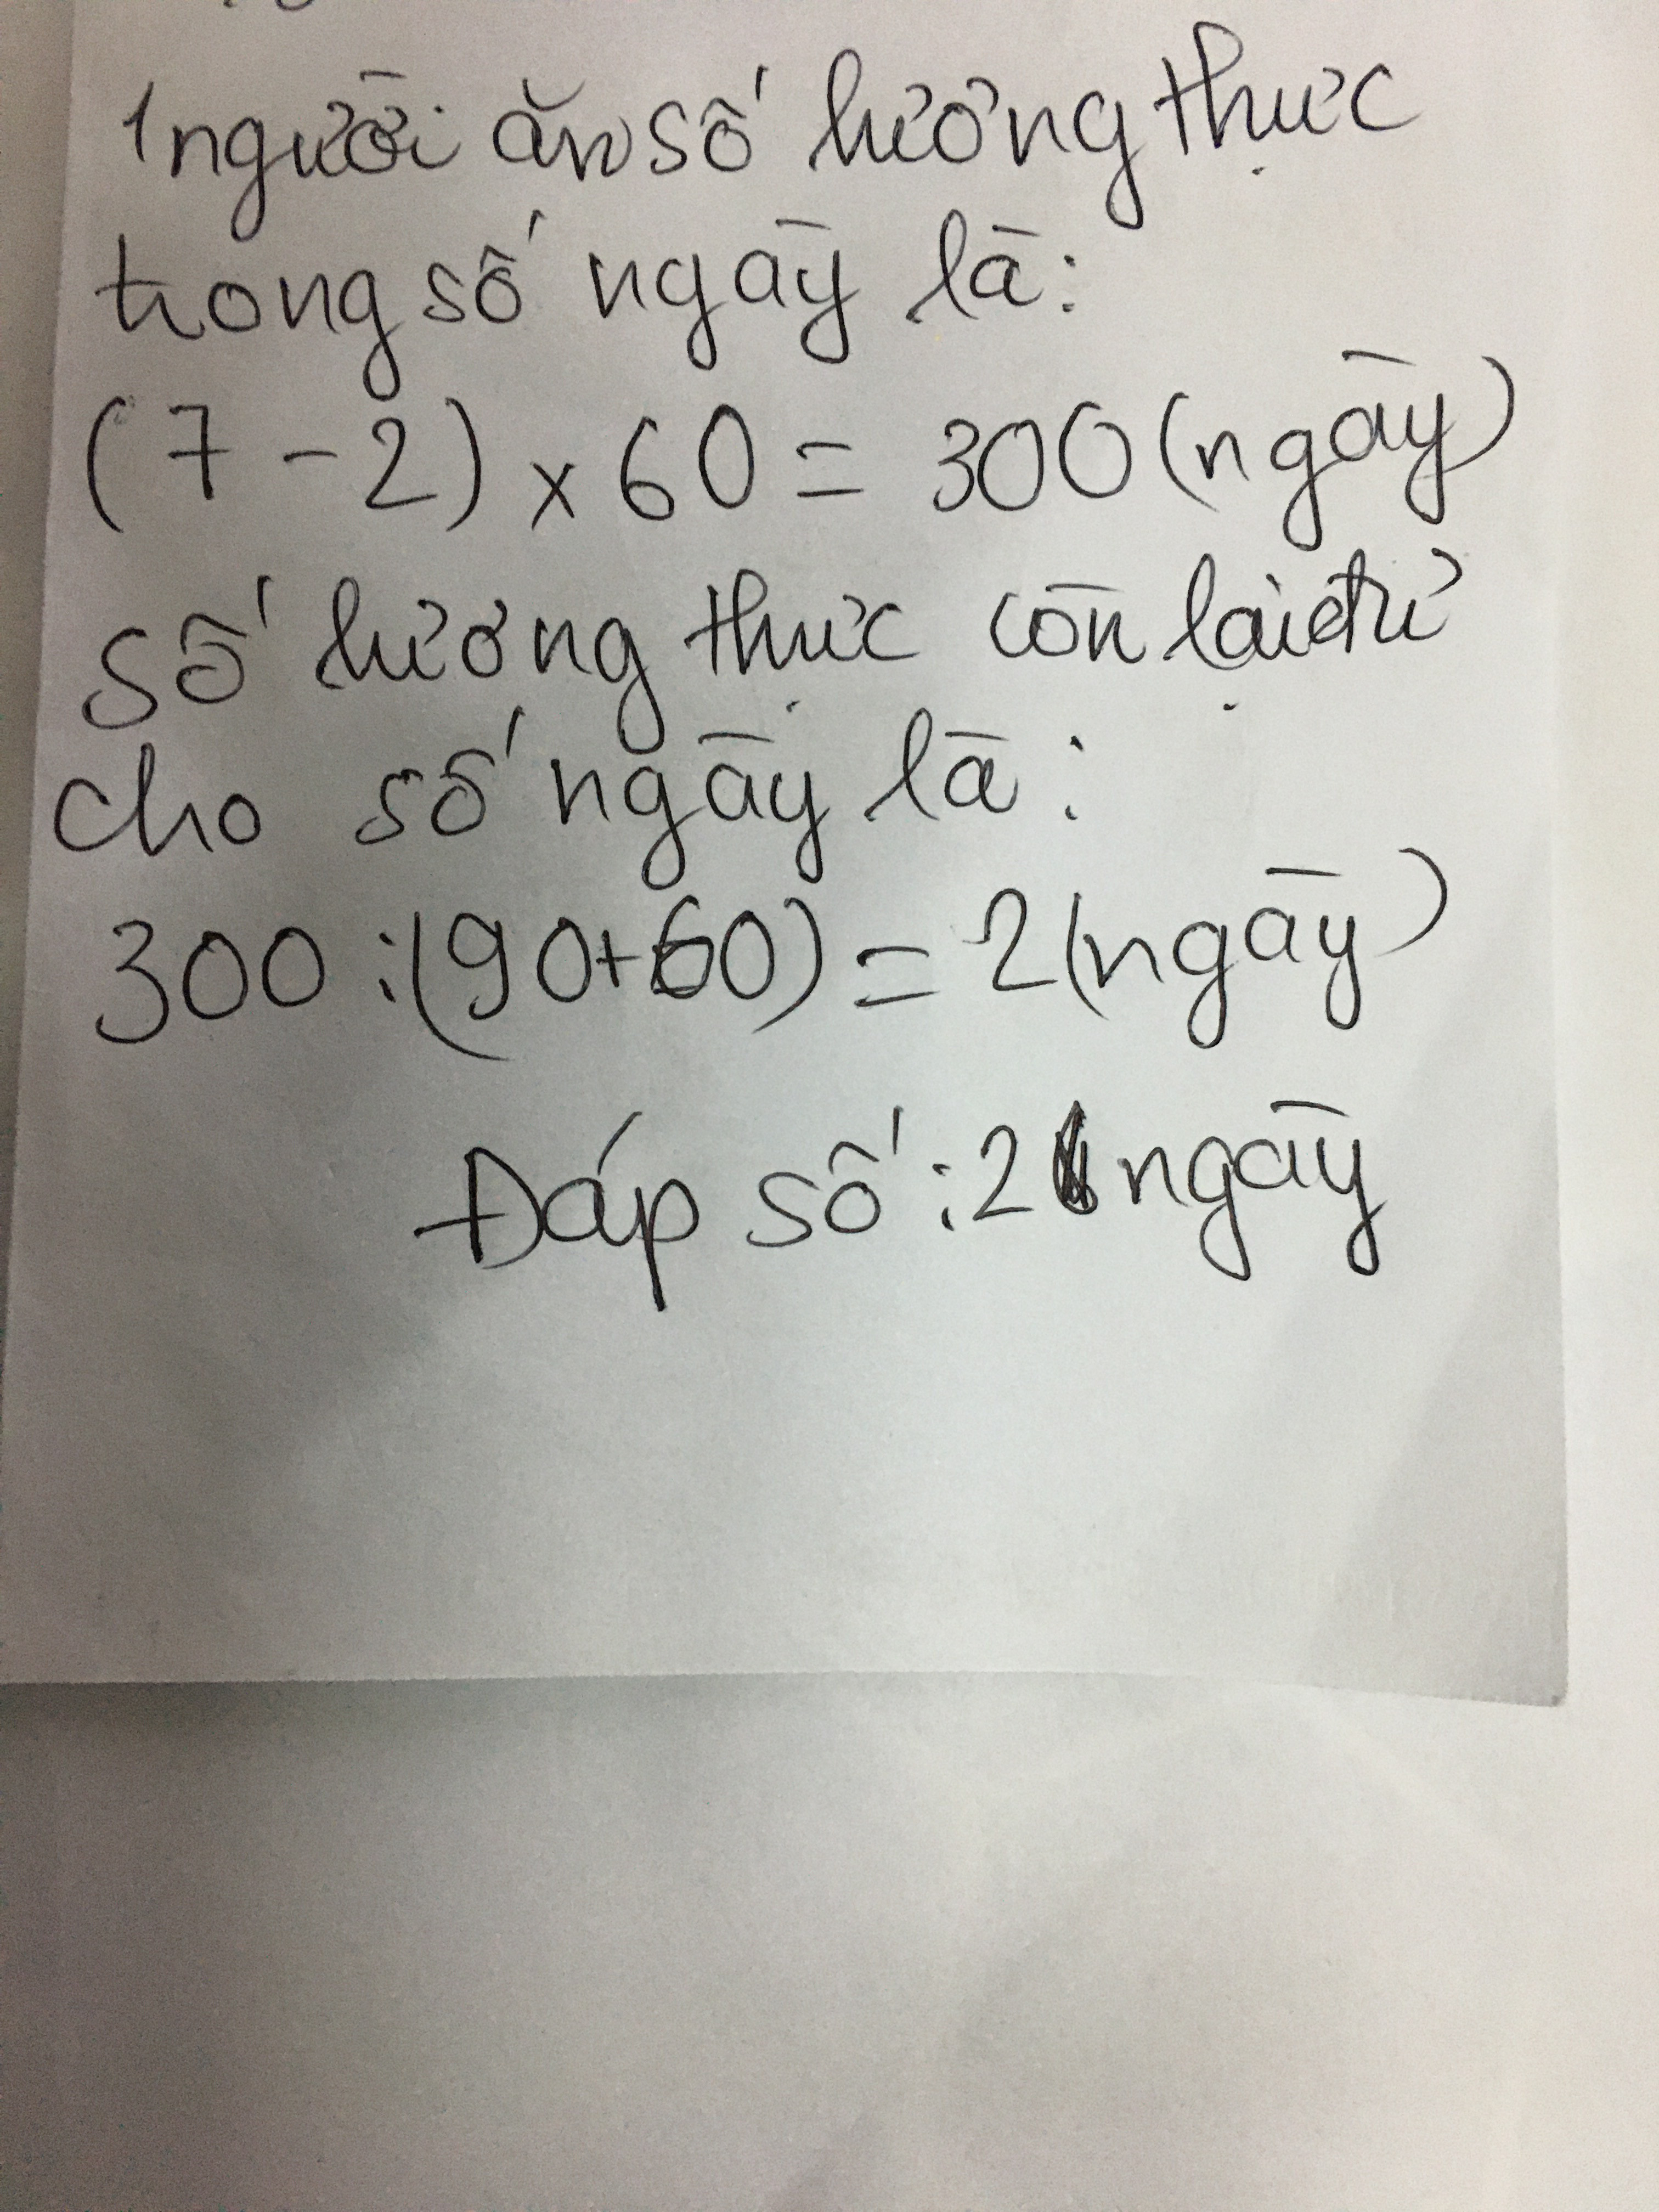 1 người ăn số lương thực
trong số ngày là:
(7-2) x 60 = 300 (ngày)
số lương thực còn lại đủ
cho số ngày là:
300 : (90+60) = 2 (ngày)
Đáp số : 2 ngày